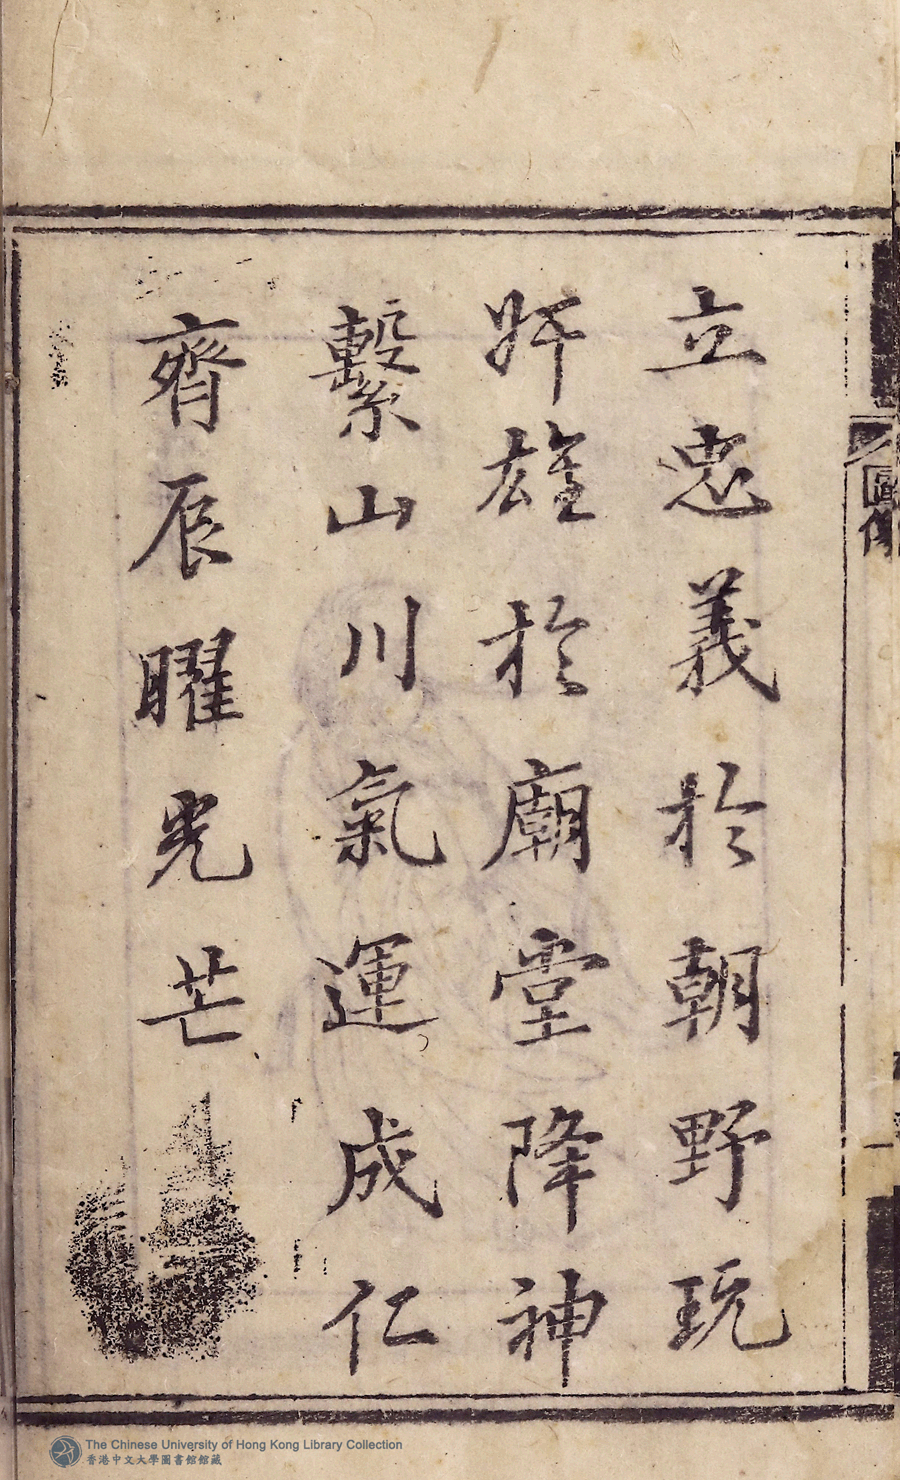 立忠義於朝野玩
奸雄於廟堂降神
繫山川氣運成仁
齊辰曜光芒
The Chinese University of Hong Kong Library Collection
香港中文大學圖書館館藏